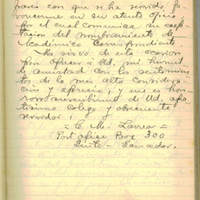 pares con que se ha servido fa-
vorecerme en su atento oficio
por el cual comunica mi acep-
tación del nombramiento de
Académico Correspondiente.
Me sirvo de esta ocasión
para ofrecer a Ud. mi humil
de amistad con los sentimien-
tos de la más alta considera-
ción y aprecio, y me es hon-
roso suscribirme de Ud. afec-
tísimo colega y obsecuente
servidor.
C. M. Larrea
Post office Box 300
Quito - Ecuador.